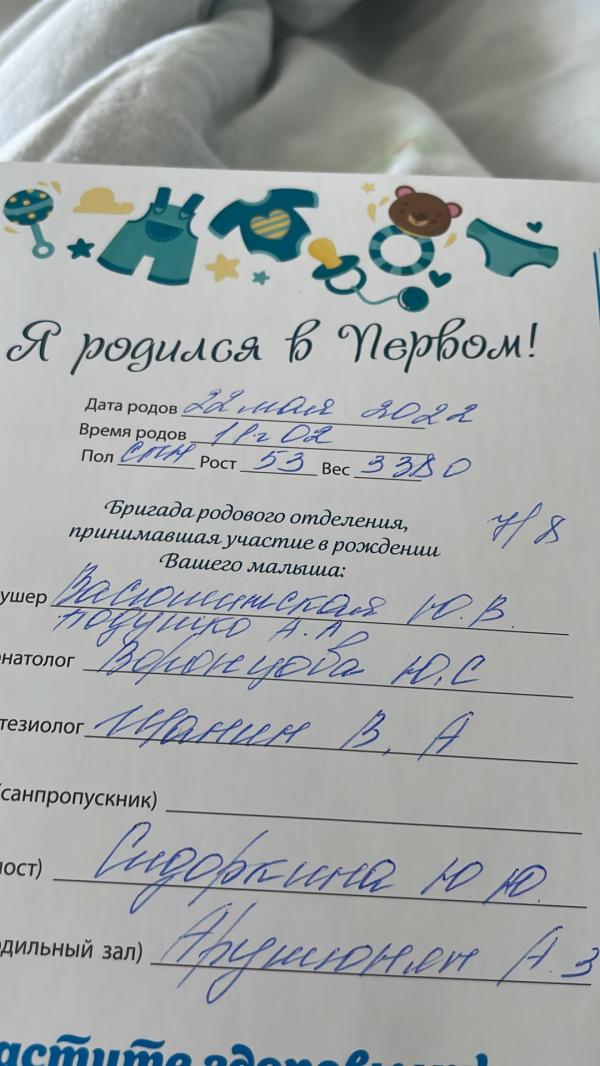 Я родился в Первом!
Дата родов 22 мая 2022
Время родов
Пол сын Рост 53 Вес 3380
Бригада родового отделения,
принимавшая участие в рождении
Вашего малыша:
7/8
ушер Васюшинская Ю.В.
Подушко А.А.
натолог Воронцова Ю.С
тезиолог Шанин В. А
(санпропускник)
пост) Сидоркина Ю.Ю.
одильный зал) Арутюнян А.З
астите здоровыми!